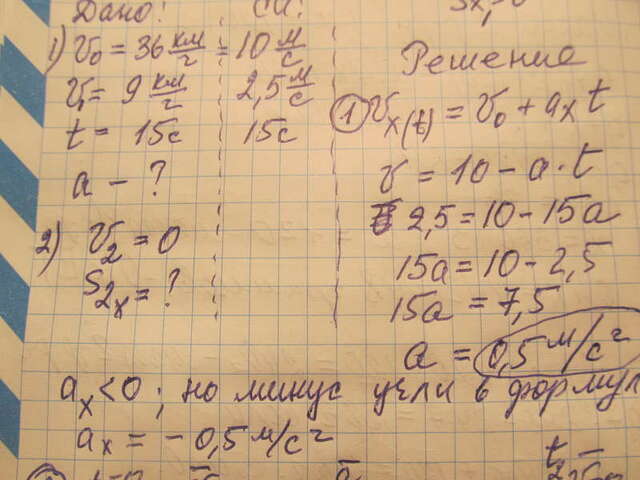 Дано: СИ:
1) v₀ = 36 км/ч = 10 м/с
v₁ = 9 км/ч 2,5 м/с
t = 15с 15с
a - ?
2) v₂ = 0
S₂ₓ = ?
Решение
① vₓ(t) = v₀ + aₓ t
v = 10 - a · t
2,5 = 10 - 15a
15a = 10 - 2,5
15a = 7,5
a = 0,5 м/с²
aₓ < 0 ; но минус учли в формул
aₓ = - 0,5 м/с²